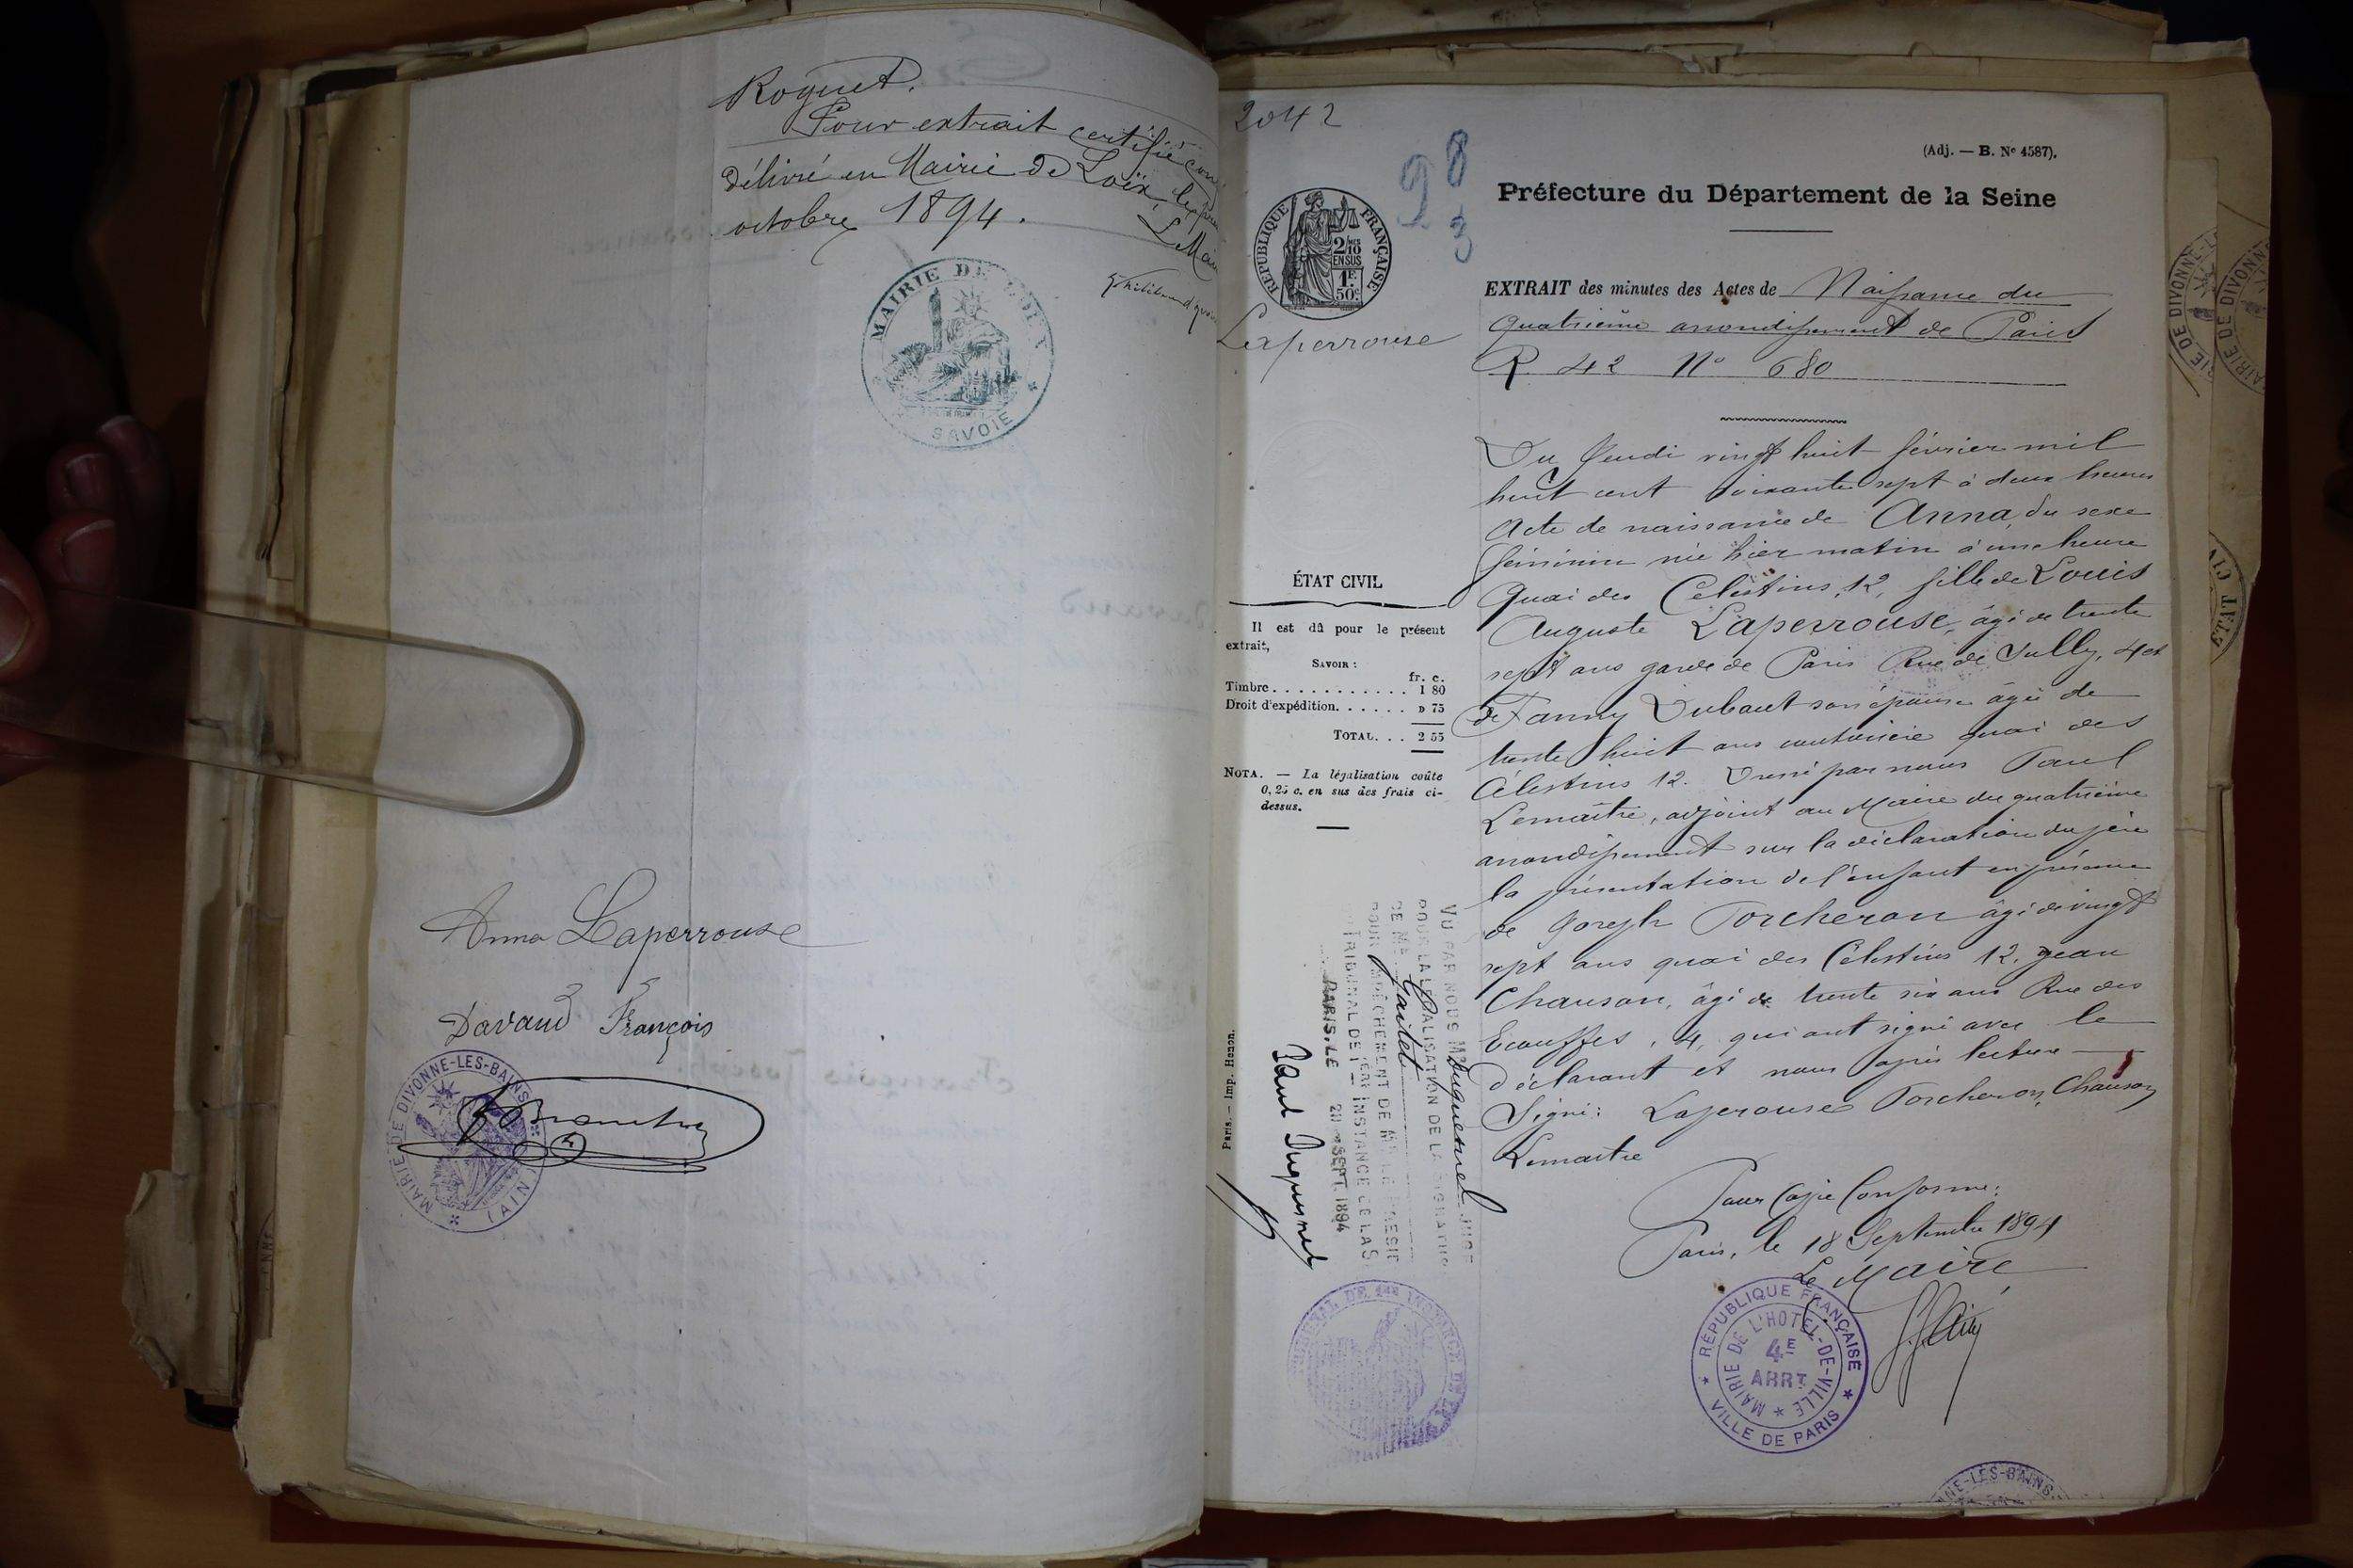 Roquet.
Pour extrait certifié con
délivré en Mairie de Loëx, le
octobre 1894.
Le Mai
MAIRIE DE
SAVOIE
Anna Laperrouse
Davaud François
MAIRIE DE DIVONNE-LES-BAINS
(AIN)
2042
98
3
(Adj. — B. Nº 4587).
Préfecture du Département de la Seine
RÉPUBLIQUE FRANÇAISE
2/10
EN SUS
1F.
50c.
Laperrouse
EXTRAIT des minutes des Actes de Naissance du
quatrième arrondissement de Paris
R. 42 Nº 680
Du Jeudi vingt huit février mil
huit cent soixante sept à deux heures
Acte de naissance de Anna, du sexe
féminin née hier matin à une heure
Quai des Célestins, 12, fille de Louis
Auguste Laperrouse, âgé de trente
sept ans garde de Paris Rue de Sully, 4 et
de Fanny Dubaut son épouse âgée de
trente huit ans couturière quai des
Célestins 12. Dressé par nous Paul
Lemaître, adjoint au Maire du quatrième
arrondissement sur la déclaration du père
la présentation de l'enfant en présence
de Joseph Torcheron âgé de vingt
sept ans quai des Célestins 12, Jean
Chauson, âgé de trente six ans Rue des
Ecouffes, 4, qui ont signé avec le
déclarant et nous après lecture
Signé: Laperouse Torcheron, Chauson
Lemaître
Pour Copie Conforme:
Paris, le 18 Septembre 1894
Le Maire
RÉPUBLIQUE FRANÇAISE
VILLE DE PARIS
MAIRIE DE L'HOTEL-DE-VILLE
4E
ARRT
ÉTAT CIVIL
Il est dû pour le présent
extrait,
SAVOIR :
fr. c.
Timbre . . . . . . . . . . . . 1 80
Droit d'expédition. . . . . . » 75
TOTAL. . . 2 55
NOTA. — La légalisation coûte
0,25 c. en sus des frais ci-
dessus.
Paris. — Imp. Henon.
VU PAR NOUS M Duquesnel JUGE
POUR LA LÉGALISATION DE LA SIGNATURE
DE MR
POUR EMPÊCHEMENT DE MR LE PRÉSID
TRIBUNAL DE 1ERE INSTANCE DE LA S
PARIS, LE SEPT. 1894
Paul Duquesnel
TRIBUNAL DE 1ERE INSTANCE DE
NE-LES-BAINS
MAIRIE DE DIVONNE
ETAT CI